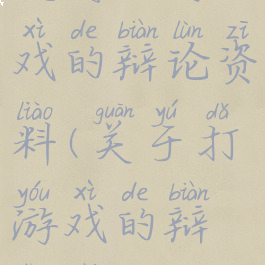 xì de biàn lùn zī
戏的辩论资
liào guān yú dǎ
料(关于打
yóu xì de biàn
游戏的辩